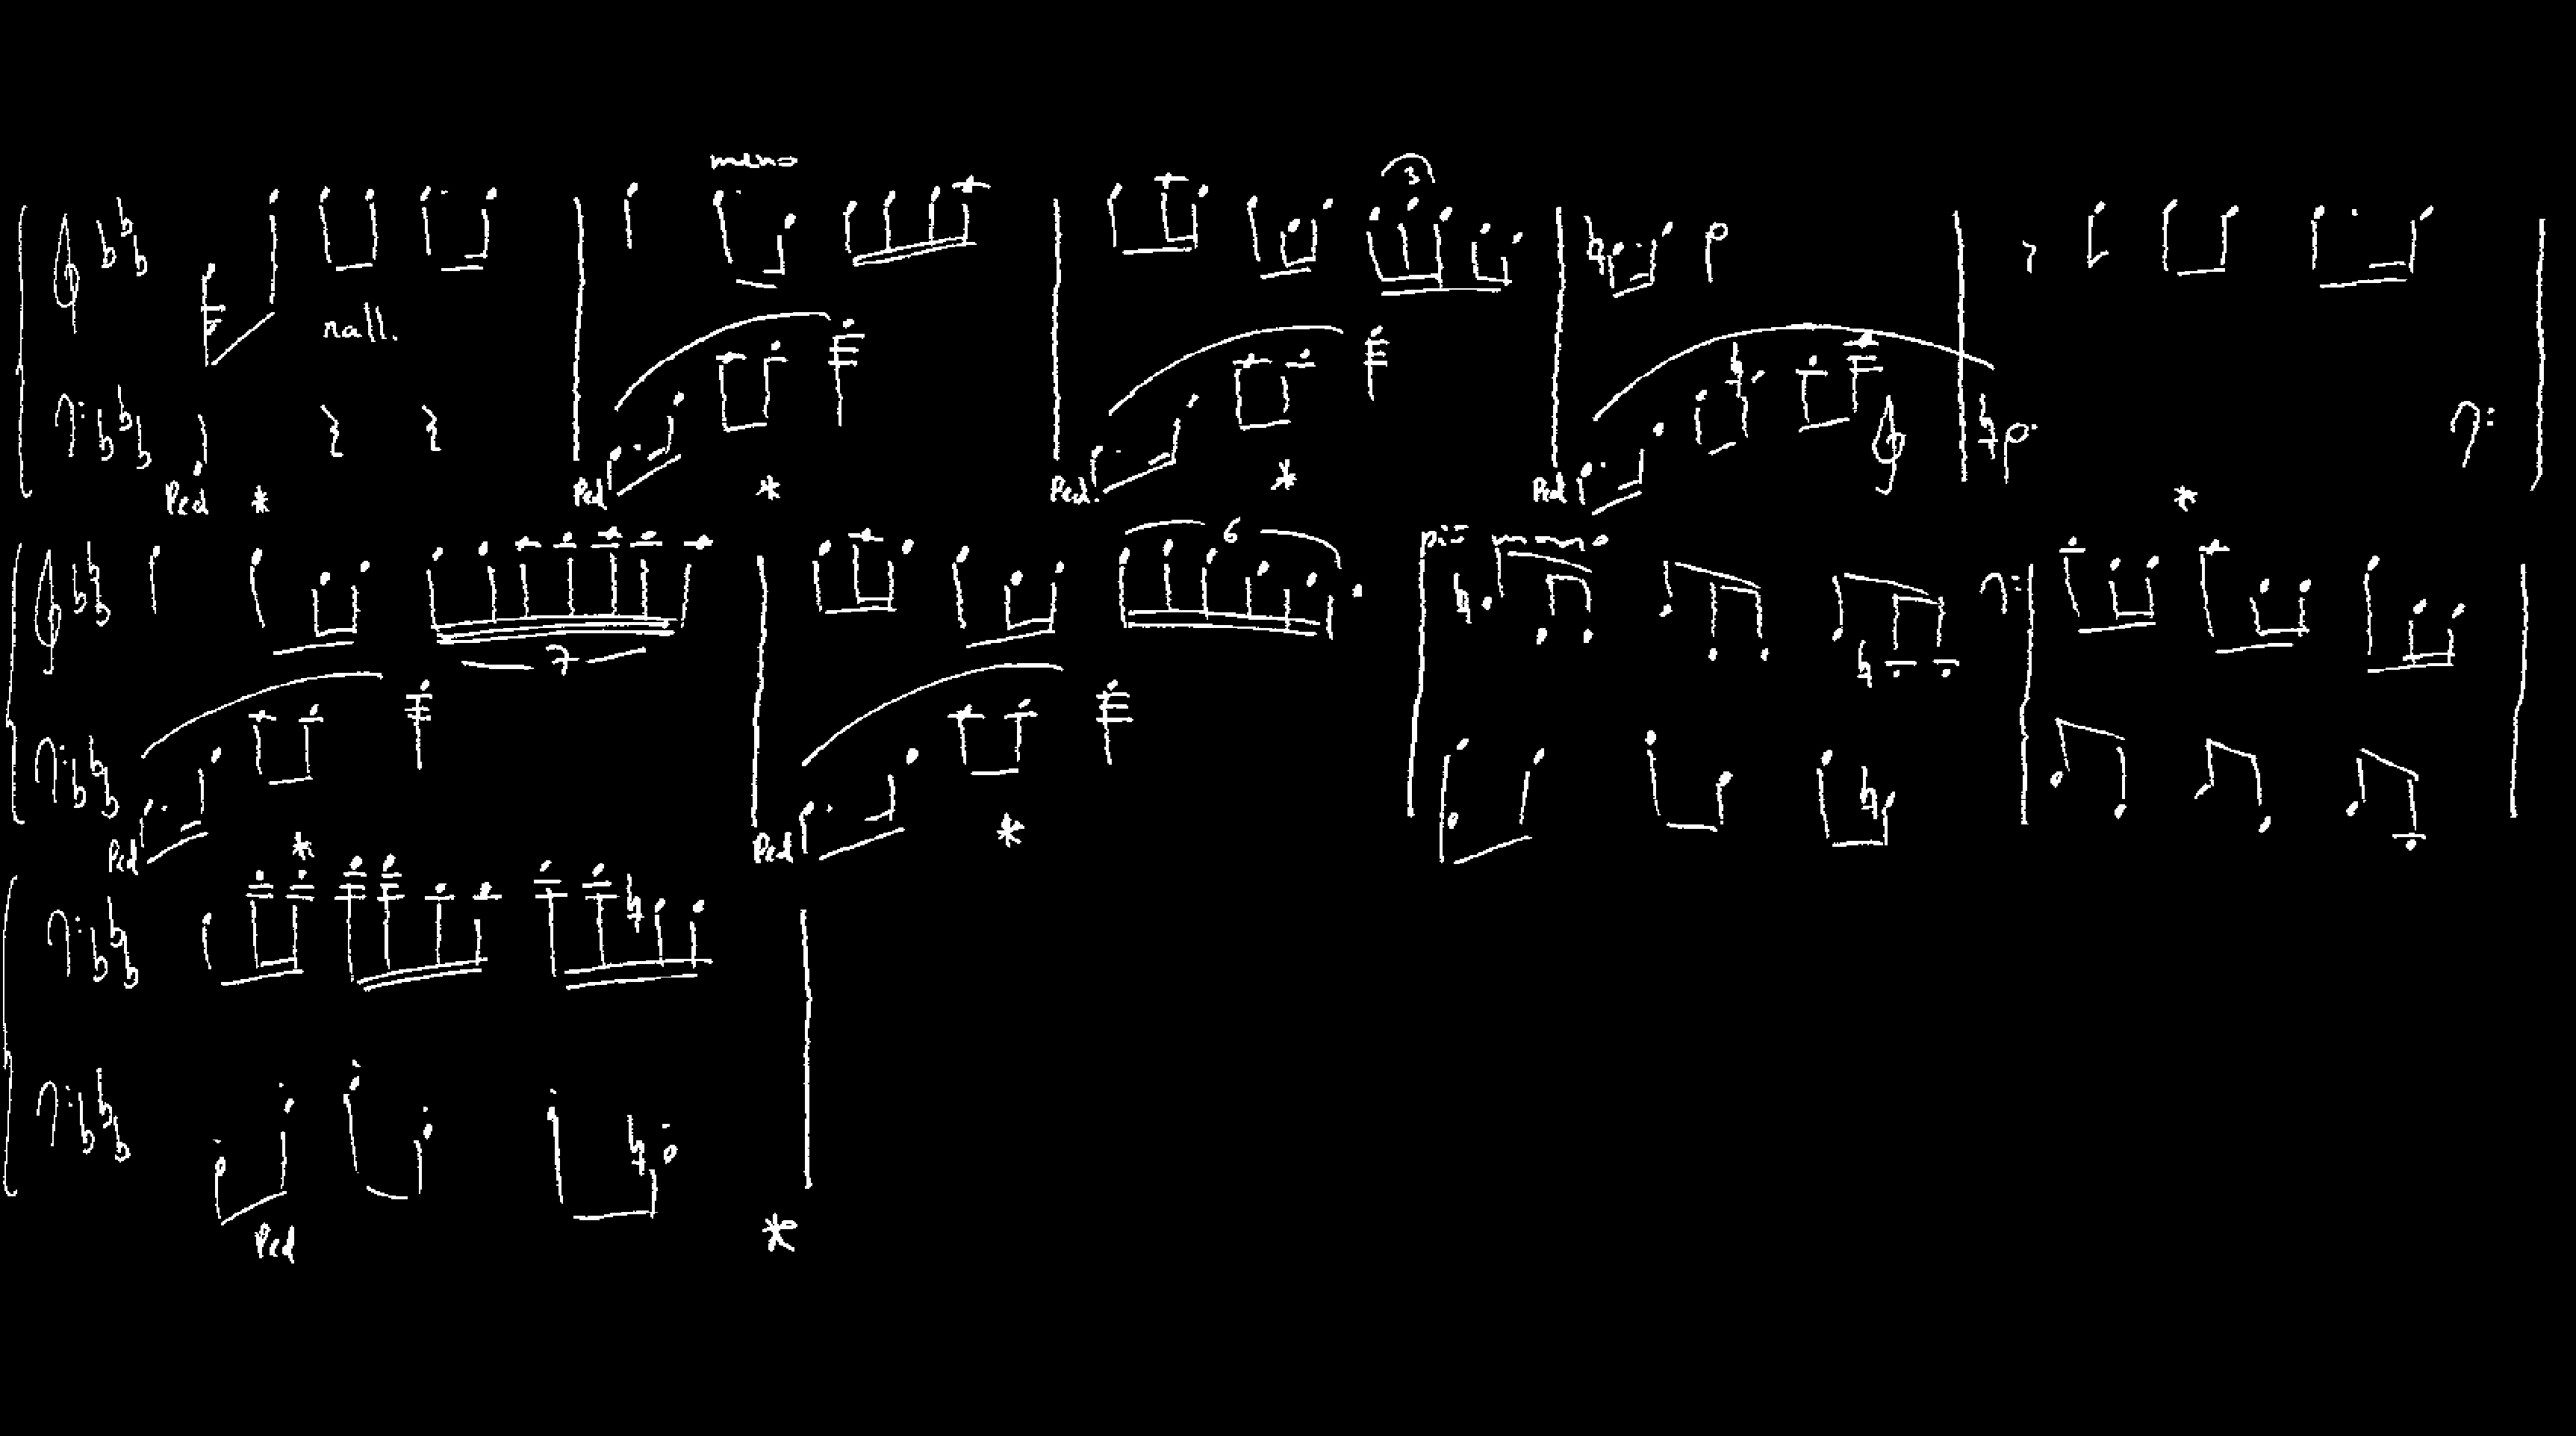 meno
3
rall.
Ped * Ped * Ped. * Ped *
più meno
6
7
Ped * Ped *
Ped *